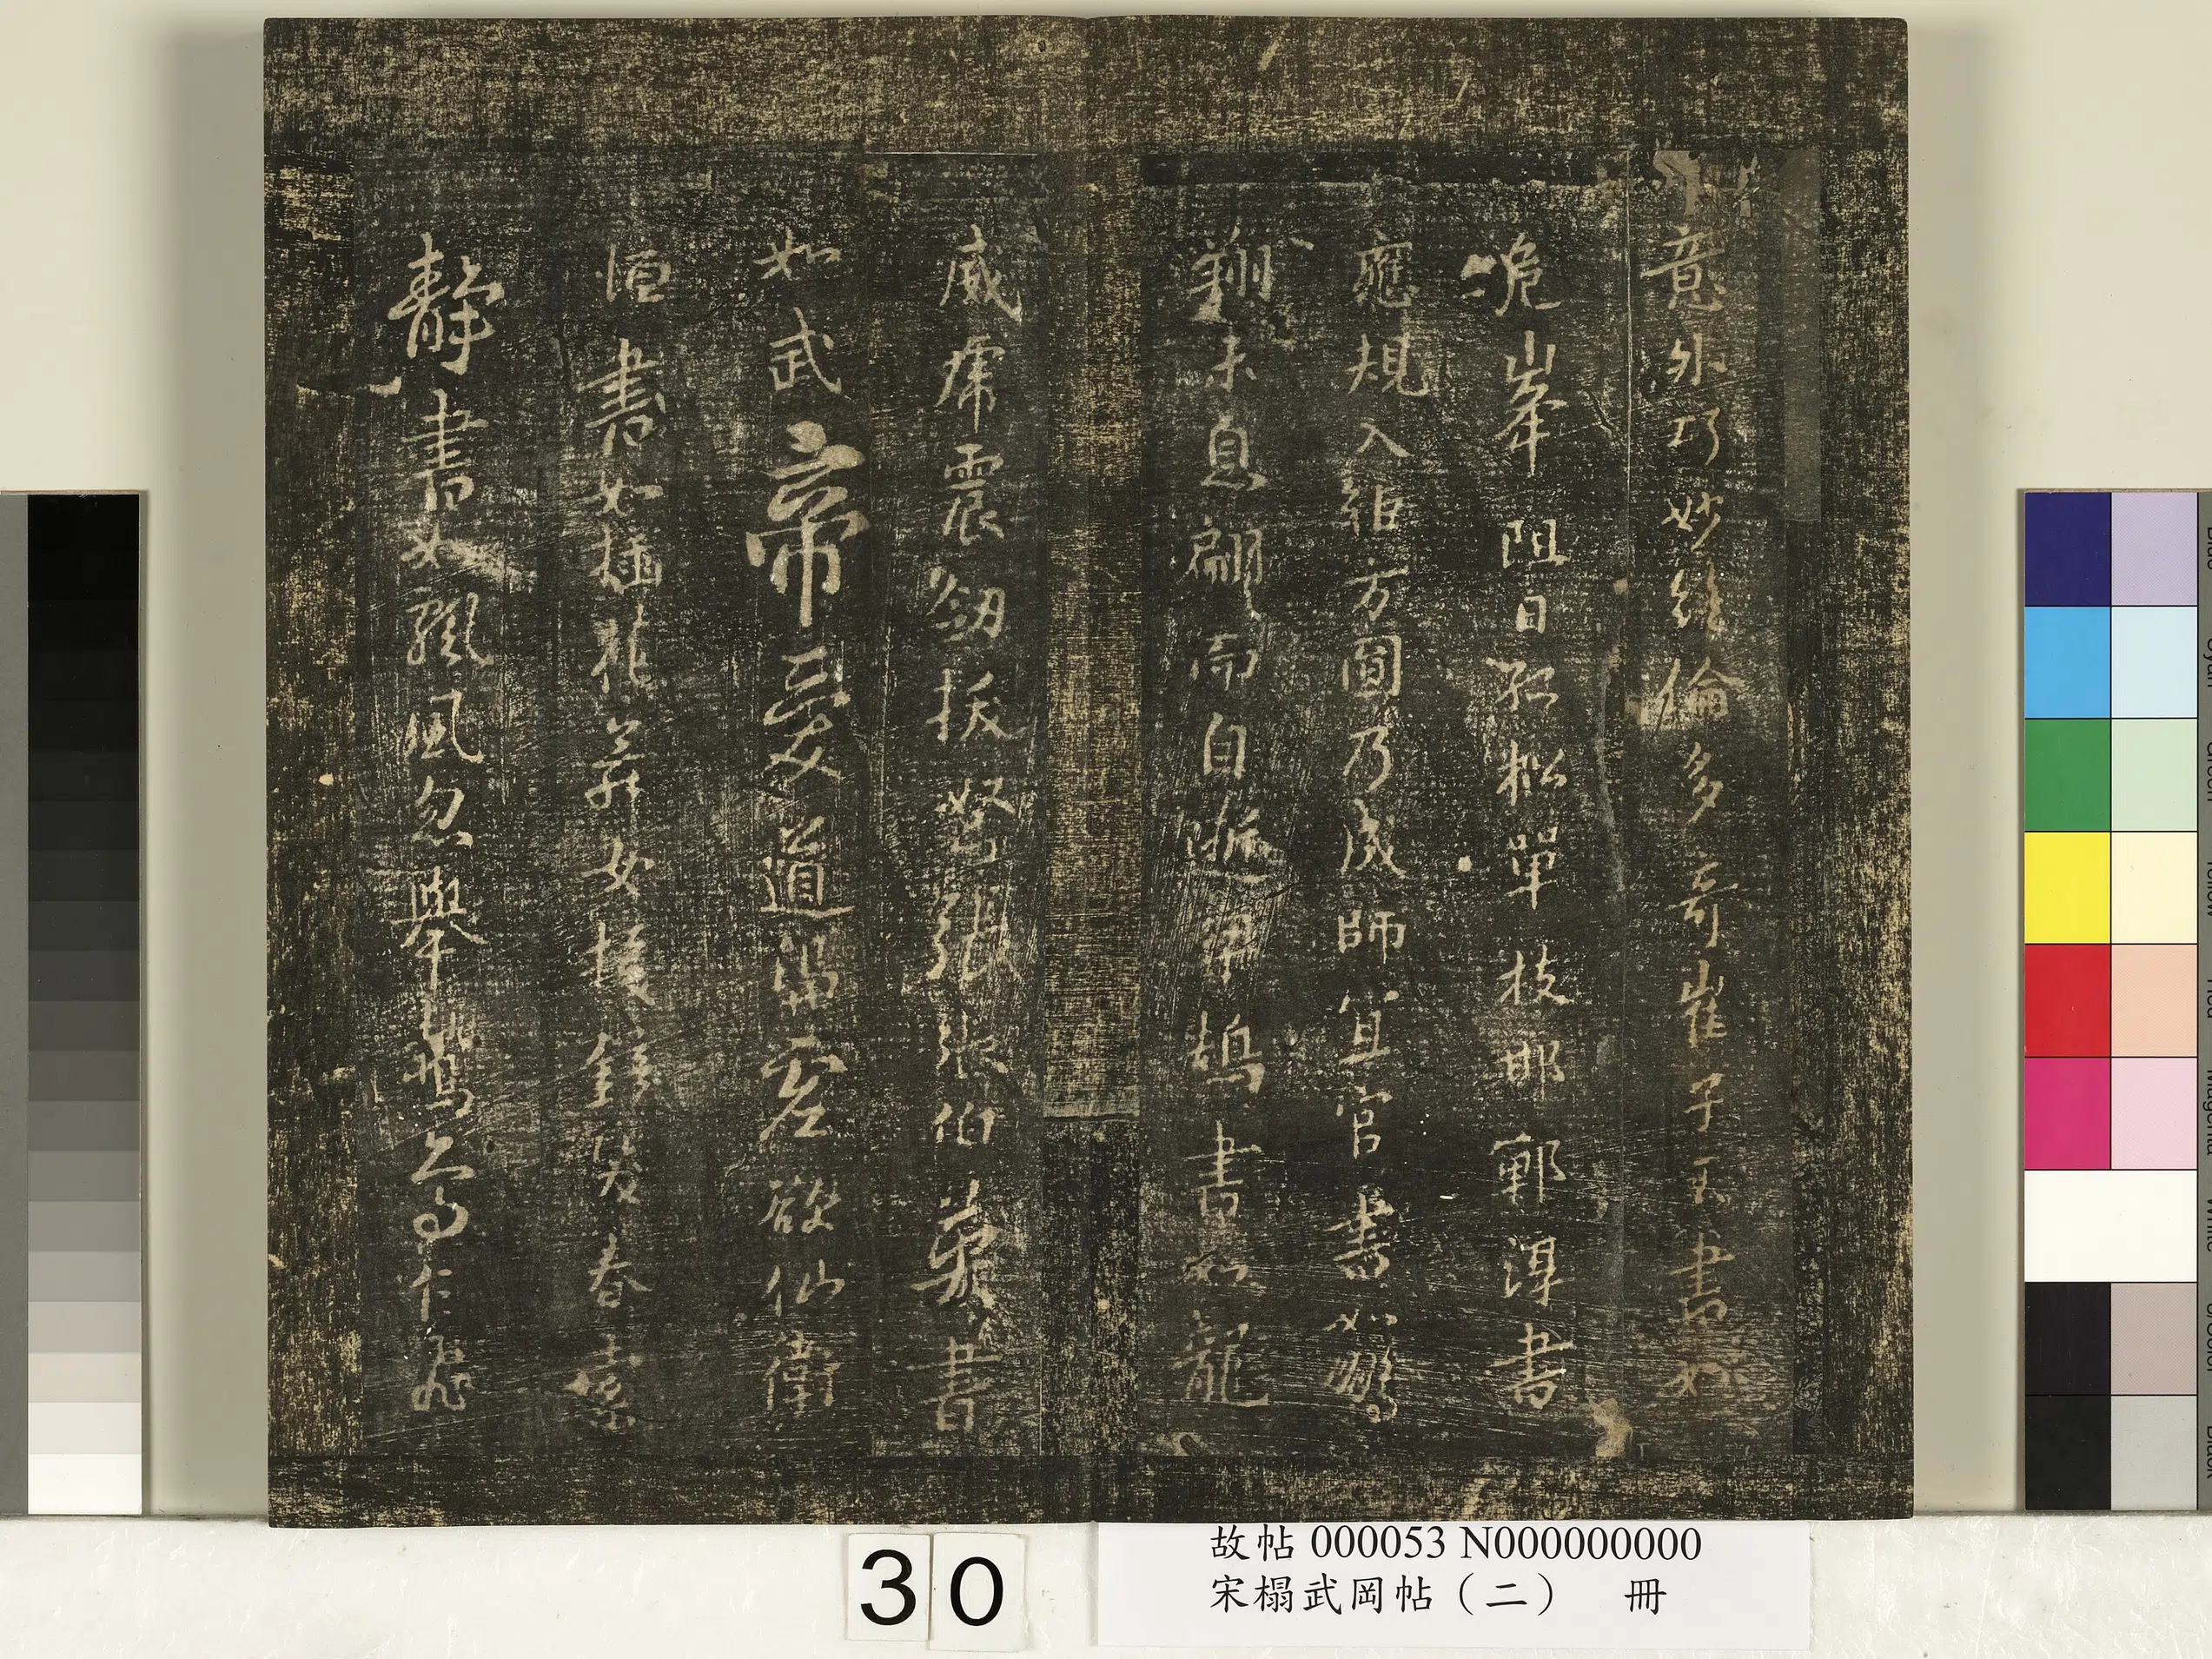 意外巧妙絕倫多奇崔子玉書如
危峯阻日孤松單枝邯鄲淳書
應規入矩方圓乃成師宜官書如鵬
翔未息翩而自逝梁鵠書如龍
威虎震劒拔弩張張伯英書
如武帝愛道馮虛欲仙衛
恒書如插花美女援鏡笑春索
靜書如飄風忽舉鷙鳥乍飛
30
故帖 000053 N000000000
宋榻武岡帖（二） 冊